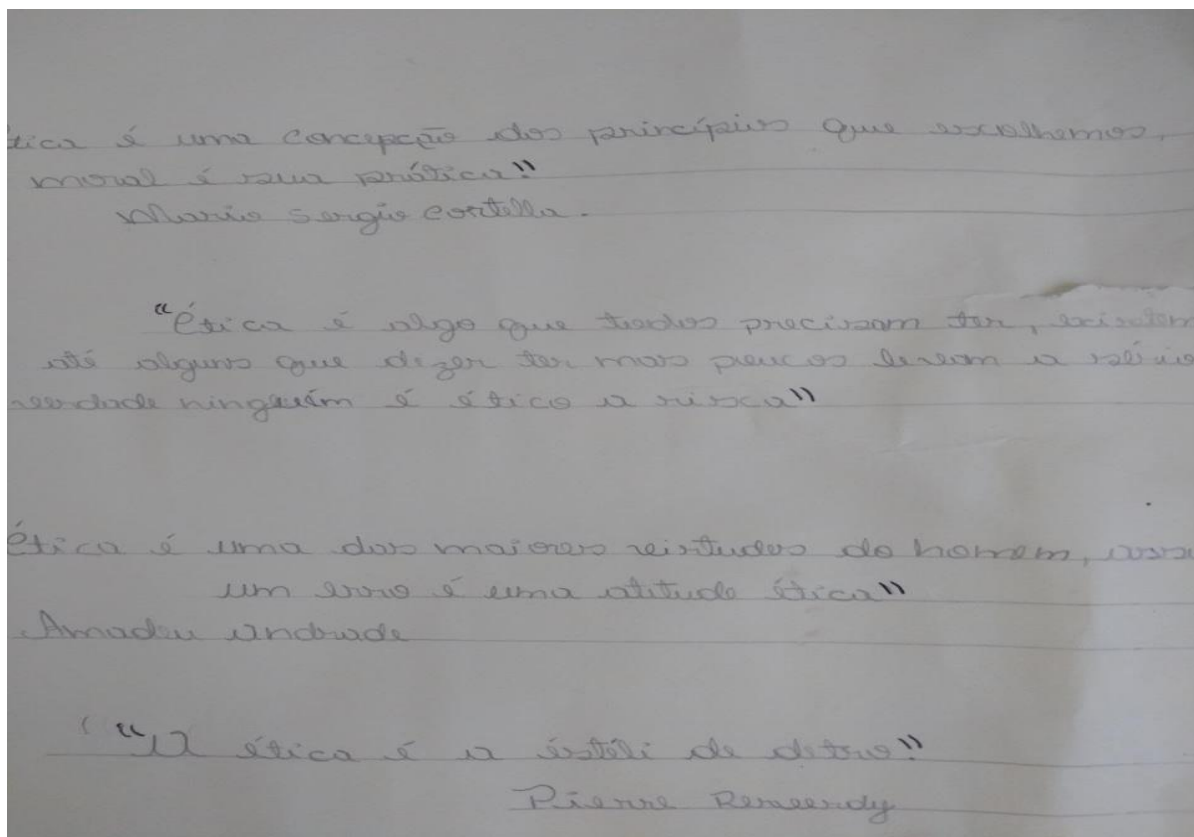 tica é uma concepção dos princípios que escolhemos,
moral é sua prática!"
Mario Sergio Cortella.
"Ética é algo que todos precisam ter, existem
até alguns que dizer ter mas poucos levam a sério
verdade ninguém é ético a risca"
Ética é uma das maiores virtudes do homem,
um erro é uma atitude ética"
Amadeu Andrade
"A ética é a éstéti de detro!"
Pierre